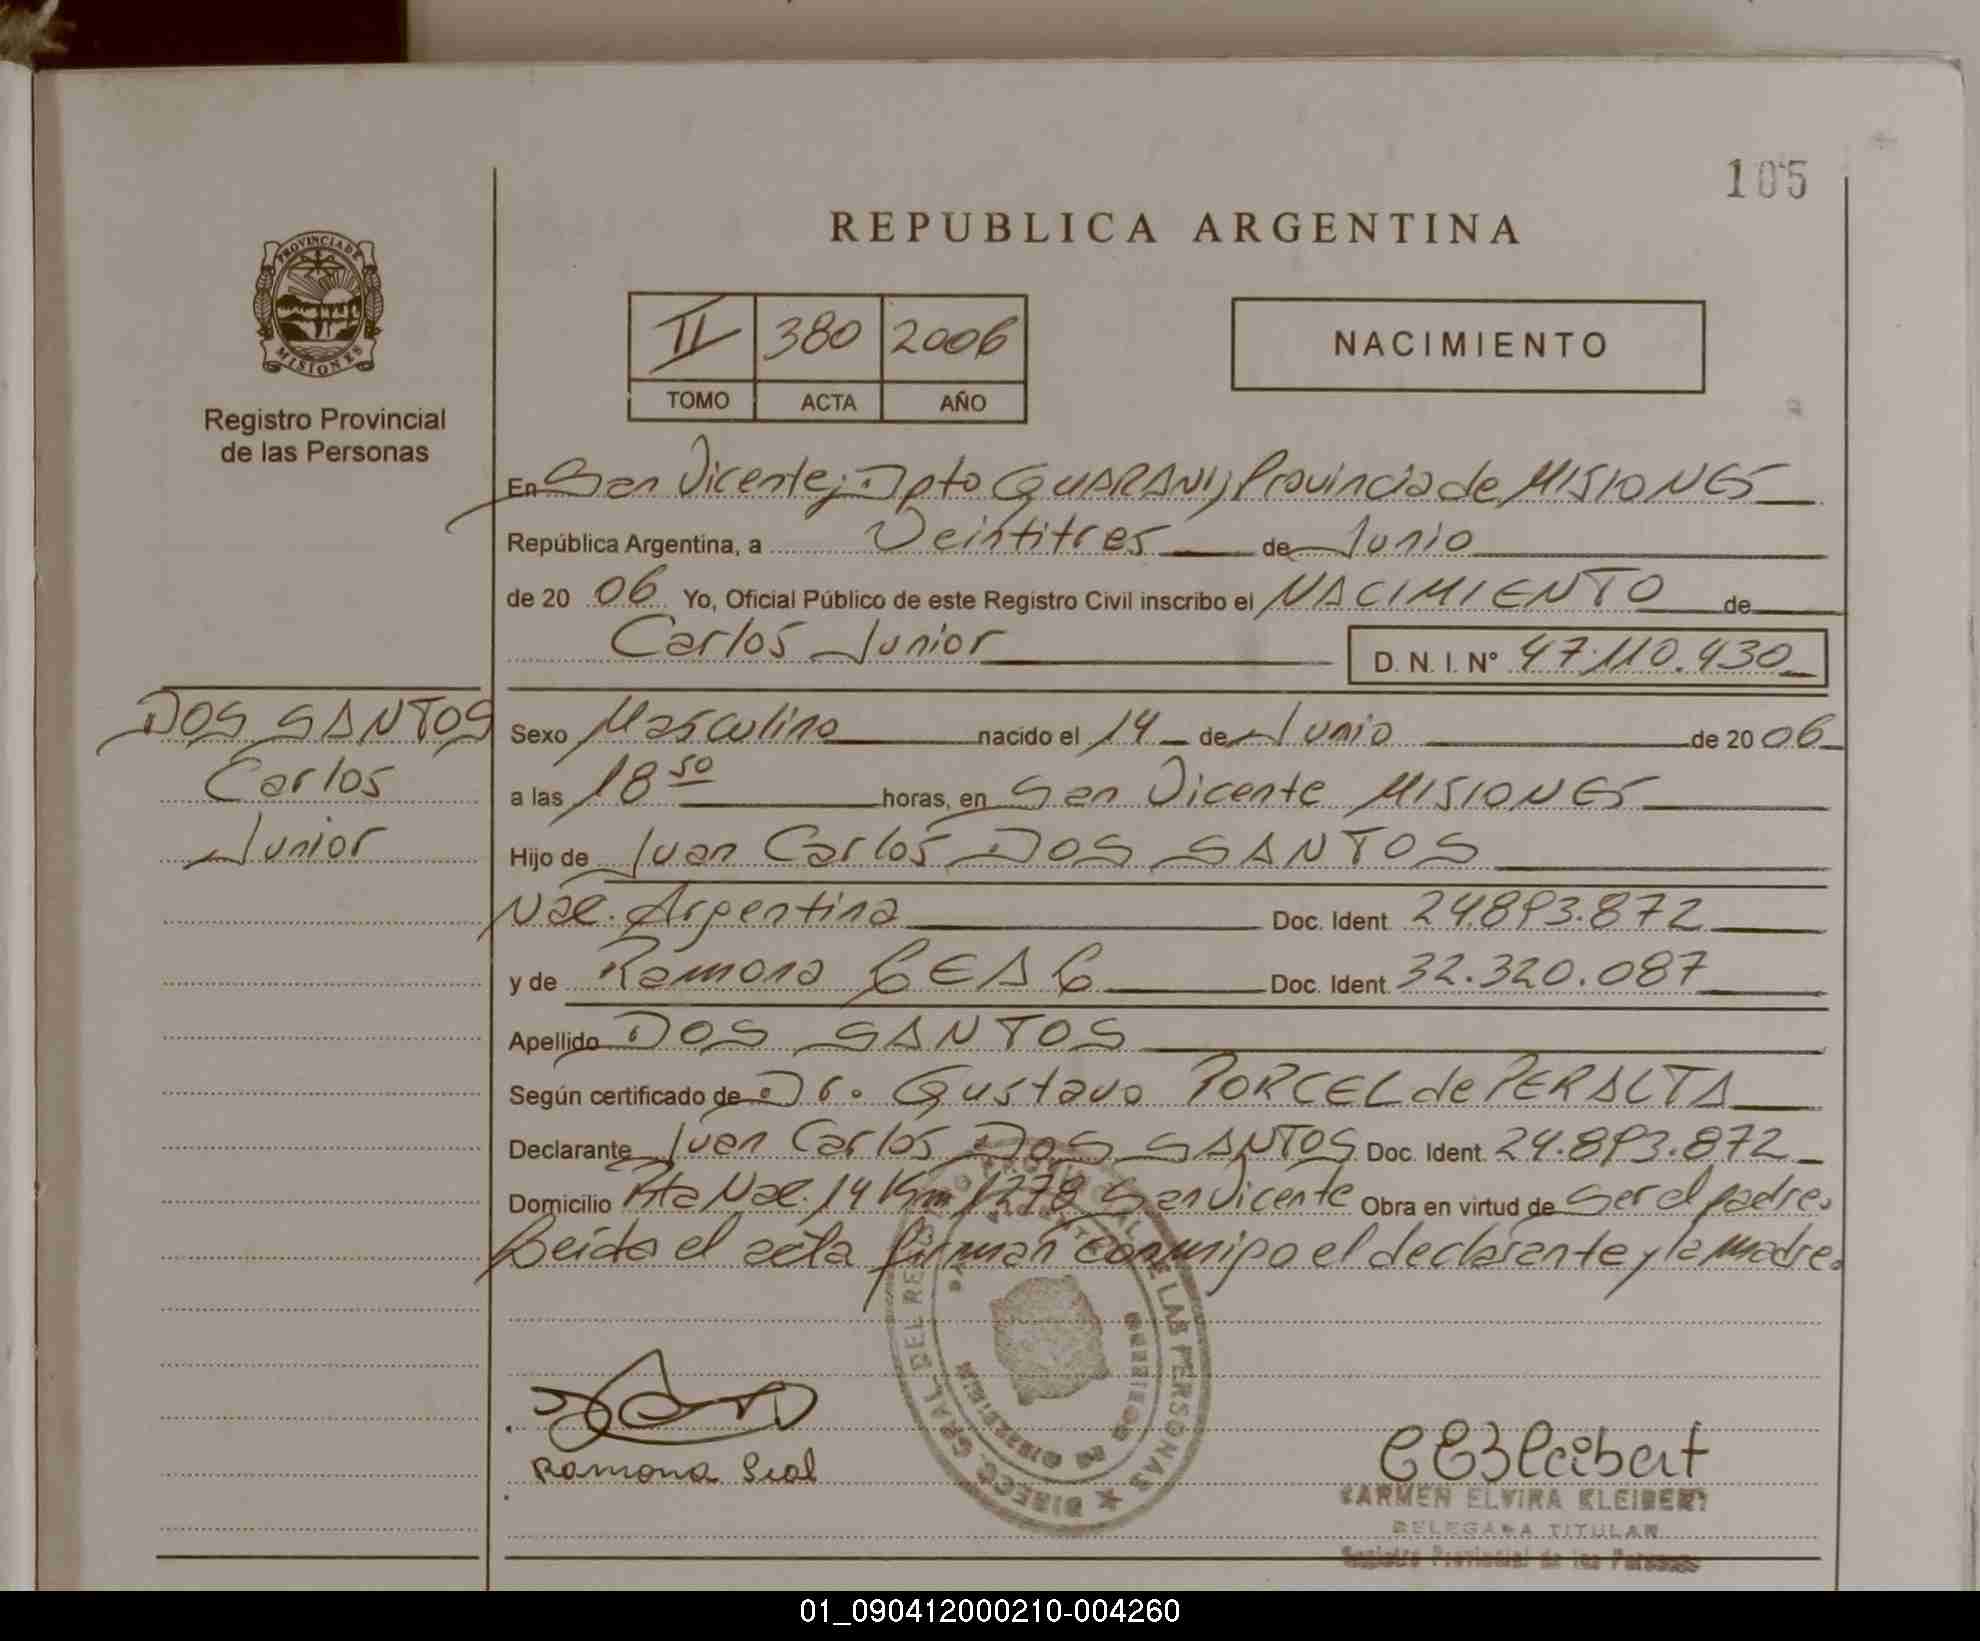 105
REPUBLICA ARGENTINA
PROVINCIA DE
MISIONES
Registro Provincial
de las Personas
II 380 2006
TOMO ACTA AÑO
NACIMIENTO
En San Vicente, Dpto GUARANI, Provincia de MISIONES
República Argentina, a Veintitres de Junio
de 20 06 Yo, Oficial Público de este Registro Civil inscribo el NACIMIENTO de
Carlos Junior D. N. I. N° 47.110.430
DOS SANTOS
Carlos
Junior
Sexo Masculino nacido el 14 de Junio de 20 06
a las 18 50 horas, en San Vicente MISIONES
Hijo de Juan Carlos DOS SANTOS
Nac. Argentina Doc. Ident. 24.893.872
y de Ramona LEAL Doc. Ident. 32.320.087
Apellido DOS SANTOS
Según certificado de Dr. Gustavo PORCEL de PERALTA
Declarante Juan Carlos DOS SANTOS Doc. Ident. 24.893.872
Domicilio Rta Nac. 14 Km 1278 San Vicente Obra en virtud de Ser el padre.
Leida el acta firman conmigo el declarante y la madre.
DIREC. GRAL. DEL DE LAS PERSONAS
Ramona Leal
CEKleibert
CARMEN ELVIRA KLEIBERT
DELEGADA TITULAR
Registro Provincial de las Personas
01_090412000210-004260